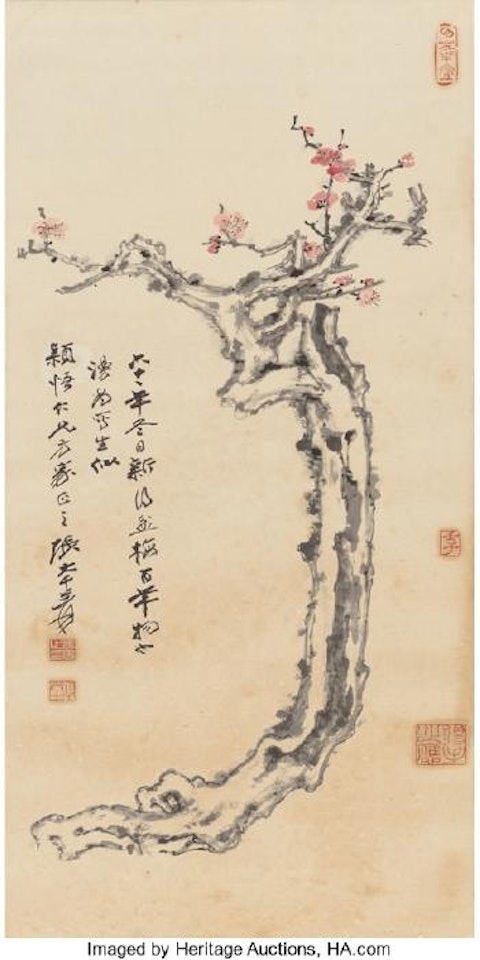 六十二年冬日新得盆梅百年物也
漫為寫生似
穎悟仁兄方家正之 張大千爰
Imaged by Heritage Auctions, HA.com